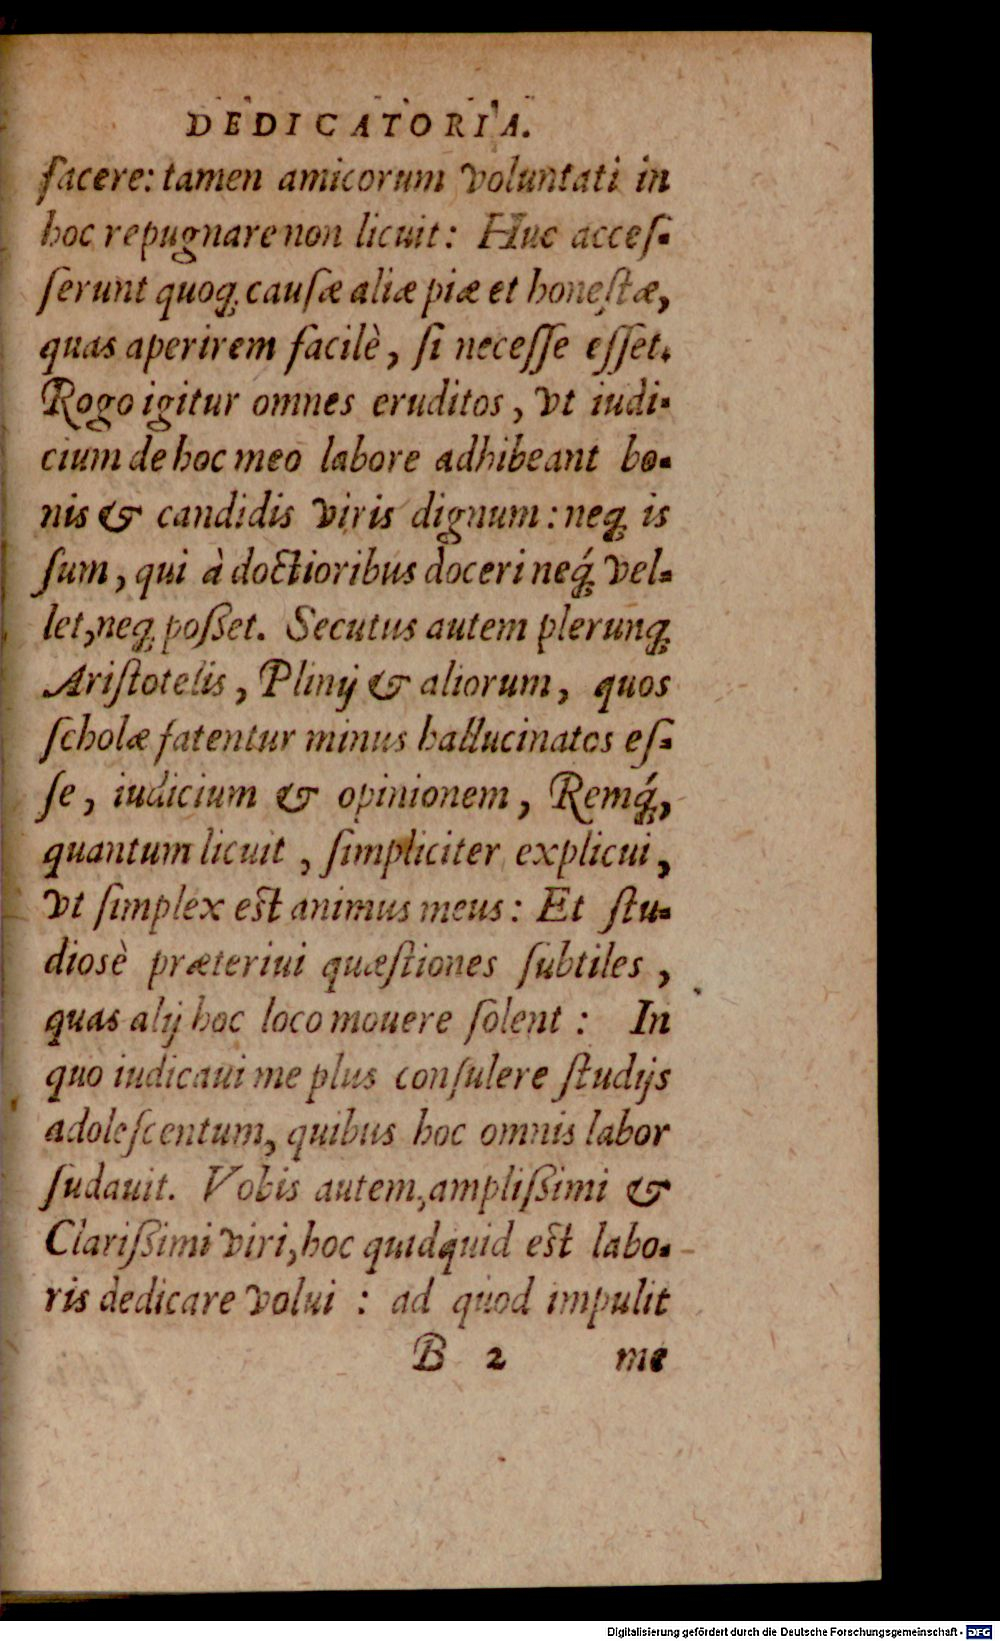 DEDICATORIA.
facere: tamen amicorum voluntati in
hoc repugnare non licuit: Huc acceſ-
ſerunt quoq; cauſæ aliæ piæ et honeſtæ,
quas aperirem facilè, ſi neceſſe eſſet.
Rogo igitur omnes eruditos, vt iudi-
cium de hoc meo labore adhibeant bo-
nis & candidis viris dignum: neq; is
ſum, qui à doctioribus doceri neq́; vel-
let, neq; poßet. Secutus autem plerunq;
Ariſtotelis, Plinij & aliorum, quos
ſcholæ fatentur minus hallucinatos eſ-
ſe, iudicium & opinionem, Remq́;,
quantum licuit, ſimpliciter explicui,
vt ſimplex est animus meus: Et ſtu-
diosè præteriui quæſtiones ſubtiles,
quas alij hoc loco mouere ſolent: In
quo iudicaui me plus conſulere ſtudijs
adoleſcentum, quibus hoc omnis labor
ſudauit. Vobis autem, amplißimi &
Clarißimi viri, hoc quidquid est labo-
ris dedicare volui: ad quod impulit
B 2 me
Digitalisierung gefördert durch die Deutsche Forschungsgemeinschaft - DFG